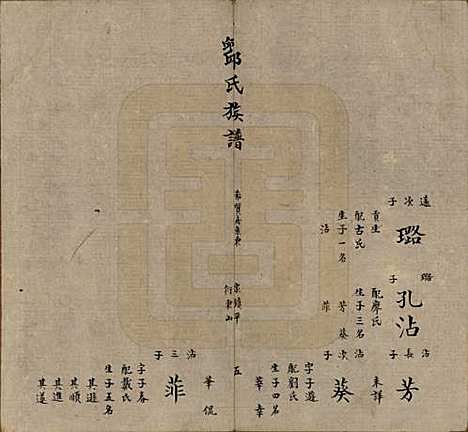 鄒氏族譜
遠次子
璐
貢生
配古氏
生子一名
沾
璐子
孔沾
配廖氏
生子三名
芳 葵
菲
沾長子
芳
未詳
沾次子
葵
字子遊
配劉氏
生子四名
華 幸
華 侃
五
沾三子
菲
字子春
配戴氏
生子五名
其遜
其順
其進
其遂